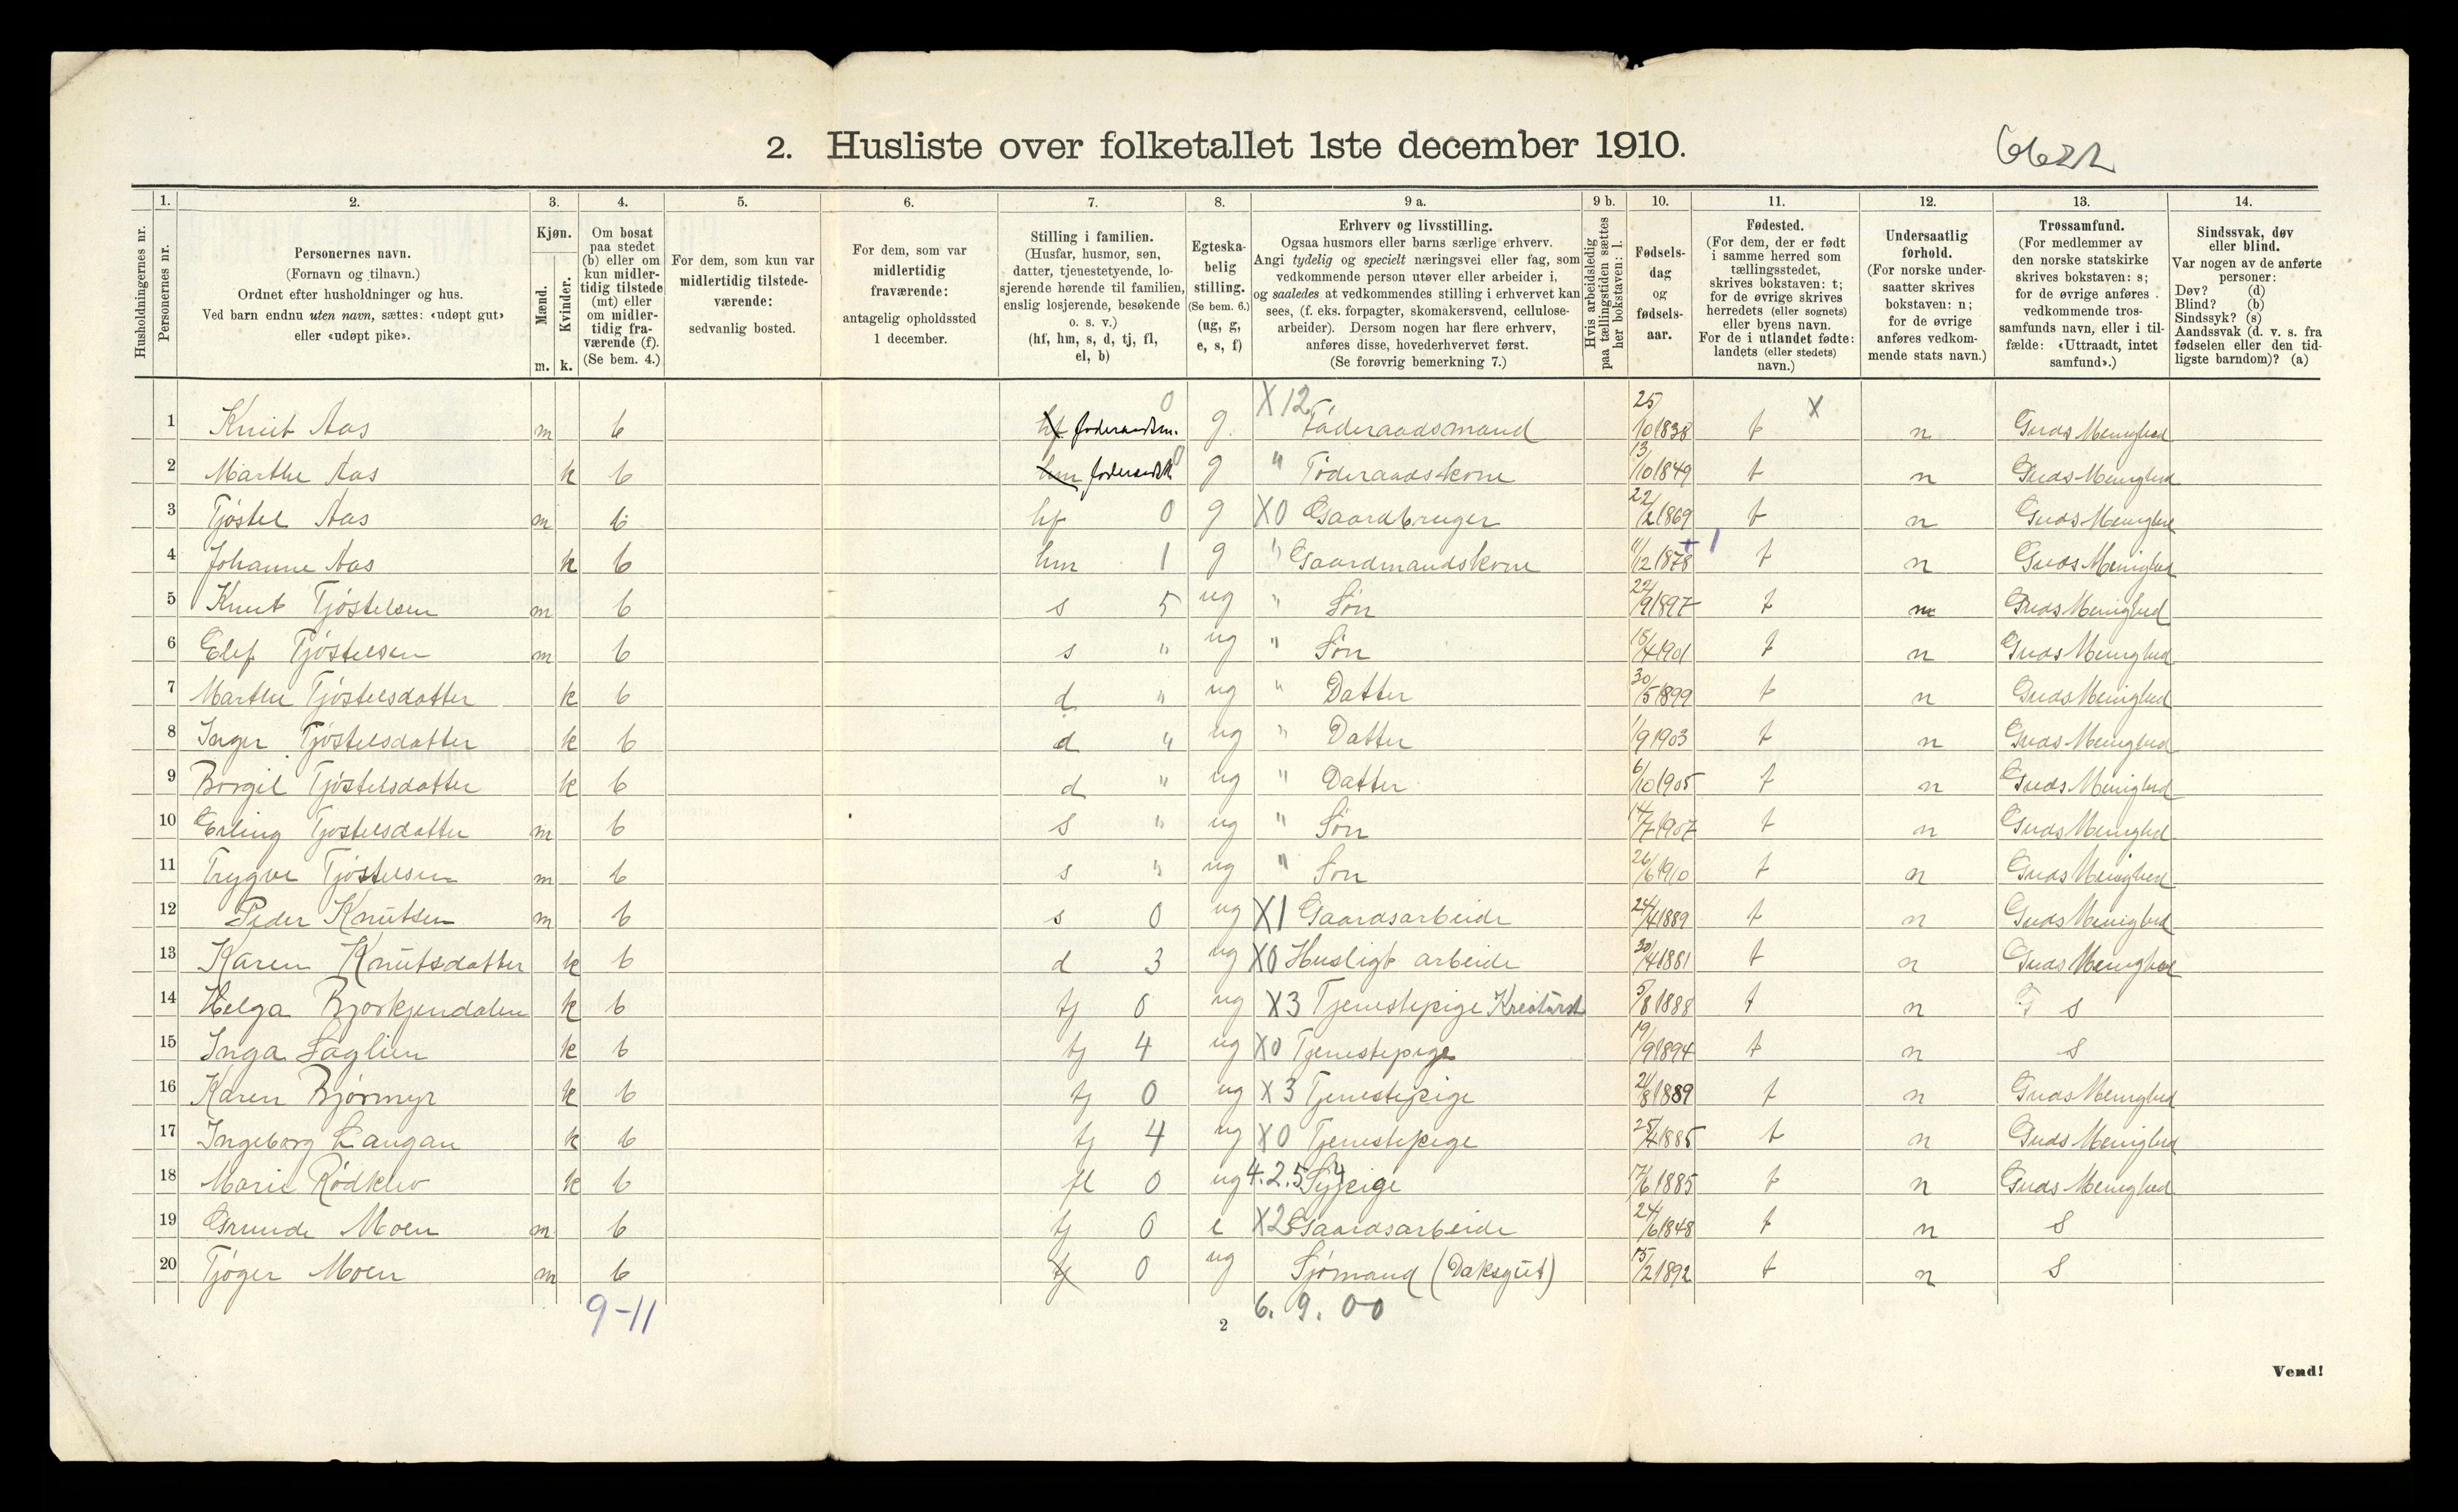 2. Husliste over folketallet 1ste december 1910.
6622
1. 2. 3. 4. 5. 6. 7. 8. 9 a. 9 b. 10. 11. 12. 13. 14.
Husholdningernes nr.
Personernes nr.
Personernes navn.
(Fornavn og tilnavn.)
Ordnet efter husholdninger og hus.
Ved barn endnu uten navn, sættes: «udøpt gut»
eller «udøpt pike».
Kjøn.
Mænd.
Kvinder.
m. k.
Om bosat
paa stedet
(b) eller om
kun midler-
tidig tilstede
(mt) eller
om midler-
tidig fra-
værende (f).
(Se bem. 4.)
For dem, som kun var
midlertidig tilstede-
værende:
sedvanlig bosted.
For dem, som var
midlertidig
fraværende:
antagelig opholdssted
1 december.
Stilling i familien.
(Husfar, husmor, søn,
datter, tjenestetyende, lo-
sjerende hørende til familien,
enslig losjerende, besøkende
o. s. v.)
(hf, hm, s, d, tj, fl,
el, b)
Egteska-
belig
stilling.
(Se bem. 6.)
(ug, g,
e, s, f)
Erhverv og livsstilling.
Ogsaa husmors eller barns særlige erhverv.
Angi tydelig og specielt næringsvei eller fag, som
vedkommende person utøver eller arbeider i,
og saaledes at vedkommendes stilling i erhvervet kan
sees, (f. eks. forpagter, skomakersvend, cellulose-
arbeider). Dersom nogen har flere erhverv,
anføres disse, hovederhvervet først.
(Se forøvrig bemerkning 7.)
Hvis arbeidsledig
paa tællingstiden sættes
her bokstaven: l.
Fødsels-
dag
og
fødsels-
aar.
Fødested.
(For dem, der er født
i samme herred som
tællingsstedet,
skrives bokstaven: t;
for de øvrige skrives
herredets (eller sognets)
eller byens navn.
For de i utlandet fødte:
landets (eller stedets)
navn.)
Undersaatlig
forhold.
(For norske under-
saatter skrives
bokstaven: n;
for de øvrige
anføres vedkom-
mende stats navn.)
Trossamfund.
(For medlemmer av
den norske statskirke
skrives bokstaven: s;
for de øvrige anføres
vedkommende tros-
samfunds navn, eller i til-
fælde: «Uttraadt, intet
samfund».)
Sindssvak, døv
eller blind.
Var nogen av de anførte
personer:
Døv? (d)
Blind? (b)
Sindssyk? (s)
Aandssvak (d. v. s. fra
fødselen eller den tid-
ligste barndom)? (a)
1 Knut Aas m b hf foderaadsm. 0 g X12 Føderaadsmand 25/10 1838 t X n Guds Menighed
2 Marthe Aas k b hm foderaadsk 0 g " Føderaadskone 13/10 1849 t n Guds Menighed
3 Tjøstel Aas m b hf 0 g X0 Gaardbruger 22/2 1869 t n Guds Menighed
4 Johanne Aas k b hm 1 g " Gaardmandskone 11/12 1878 + 1 t n Guds Menighed
5 Knut Tjøstelsen m b s 5 ug " Søn 22/9 1897 t n Guds Menighed
6 Elef Tjøstelsen m b s " ug " Søn 15/4 1901 t n Guds Menighed
7 Marthe Tjøstelsdatter k b d " ug " Datter 30/5 1899 t n Guds Menighed
8 Inger Tjøstelsdatter k b d " ug " Datter 1/9 1903 t n Guds Menighed
9 Borgil Tjøstelsdatter k b d " ug " Datter 6/10 1905 t n Guds Menighed
10 Erling Tjøstelsdatter m b s " ug " Søn 14/7 1907 t n Guds Menighed
11 Trygve Tjøstelsen m b s " ug " Søn 26/6 1910 t n Guds Menighed
12 Peder Knutsen m b s 0 ug X1 Gaardsarbeide 24/4 1889 t n Guds Menighed
13 Karen Knutsdatter k b d 3 ug X0 Husligt arbeide 30/4 1881 t n Guds Menighed
14 Helga Bjørkjendalen k b tj 0 ug X3 Tjenestepige Kreaturst 5/8 1888 t n S
15 Inga Saglien k b tj 4 ug X0 Tjenestepige 19/9 1894 t n S
16 Karen Bjørmyr k b tj 0 ug X3 Tjenestepige 21/8 1889 t n Guds Menighed
17 Ingeborg Langan k b tj 4 ug X0 Tjenestepige 25/4 1885 t n Guds Menighed
18 Marie Rødklev k b fl 0 ug 4.2.54 Sypige 17/6 1885 t n Guds Menighed
19 Grunde Moen m b tj 0 e X2 Gaardsarbeide 24/6 1848 t n S
20 Tjøger Moen m b tj 0 ug Sjømand (Daksgut) 15/2 1892 t n S
9-11
6. 9. 00
2
Vend!